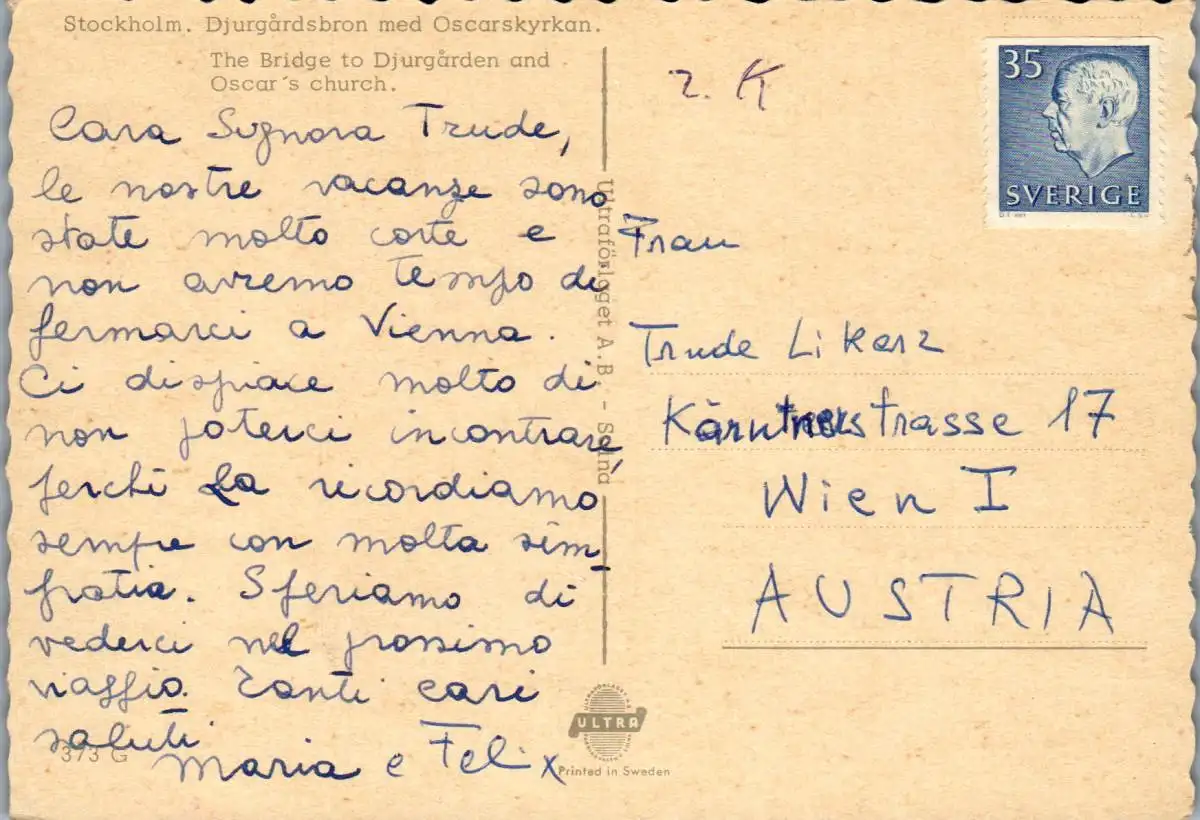 Stockholm. Djurgårdsbron med Oscarskyrkan.
The Bridge to Djurgården and
Oscar's church.
Cara Signora Trude,
le nostre vacanze sono
state molto corte e
non avremo tempo di
fermarci a Vienna.
Ci dispiace molto di
non poterci incontrare
perchè La ricordiamo
sempre con molta sim-
patia. Speriamo di
vederci nel prossimo
viaggio. Tanti cari
saluti
Maria e Felix
373 G
Ultraförlaget A.B. - Solna
ULTRA
Printed in Sweden
2. K
35
SVERIGE
Frau
Trude Likerz
Kärntnerstrasse 17
Wien I
AUSTRIA